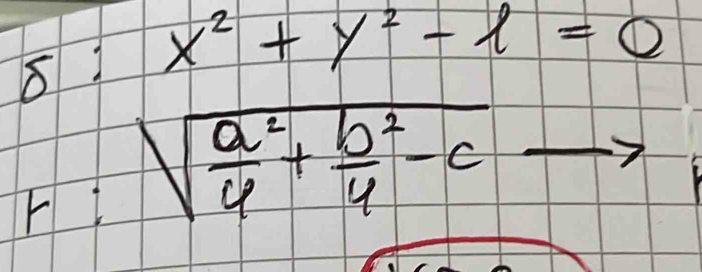 δ : x² + y² - 1 = 0
r : √(a²/4 + b²/4 - c) →